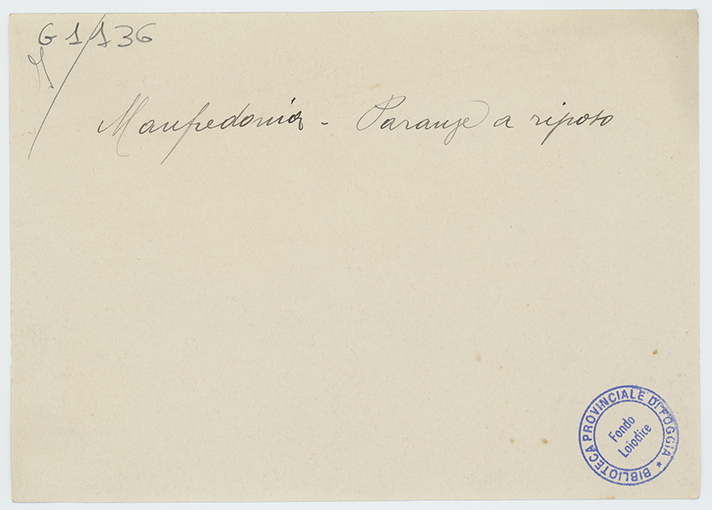 G 1136
Manfredonia - Paranze a riposo
BIBLIOTECA PROVINCIALE DI FOGGIA
Fondo
Loiodice